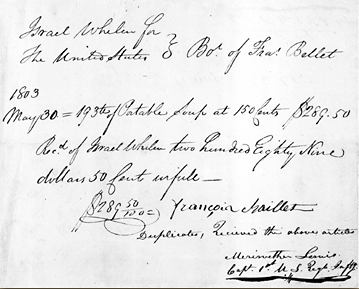 Israel Whelen for
The United States } Bot. of Fras. Bellet
1803
May 30 = 193 lb of Portable Soup at 150 Cents $289.50
Recd. of Israel Whelen two hundred Eighty Nine
dollars 50 Cent in full —
$289 50/100 = François Baillet
Duplicates, Recieved the above articles
Meriwether Lewis.
Capt. 1st. U. S. Regt. Infty.